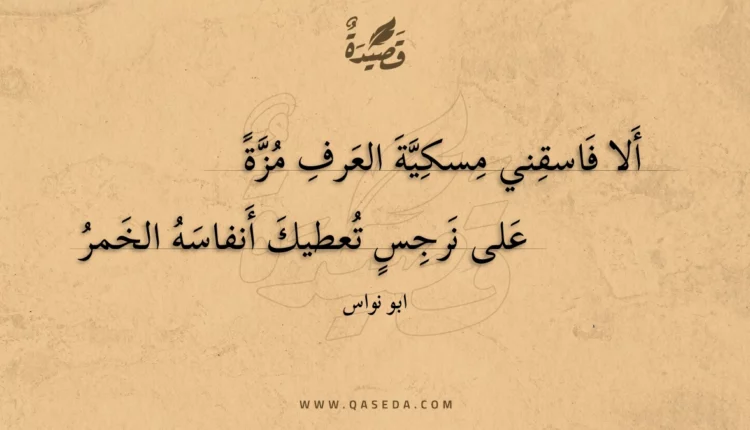 قَصِيدَةٌ
أَلا فَاسقِني مِسكِيَّةَ العَرفِ مُزَّةً
عَلى نَرجِسٍ تُعطيكَ أَنفاسَهُ الخَمرُ
ابو نواس
WWW.QASEDA.COM